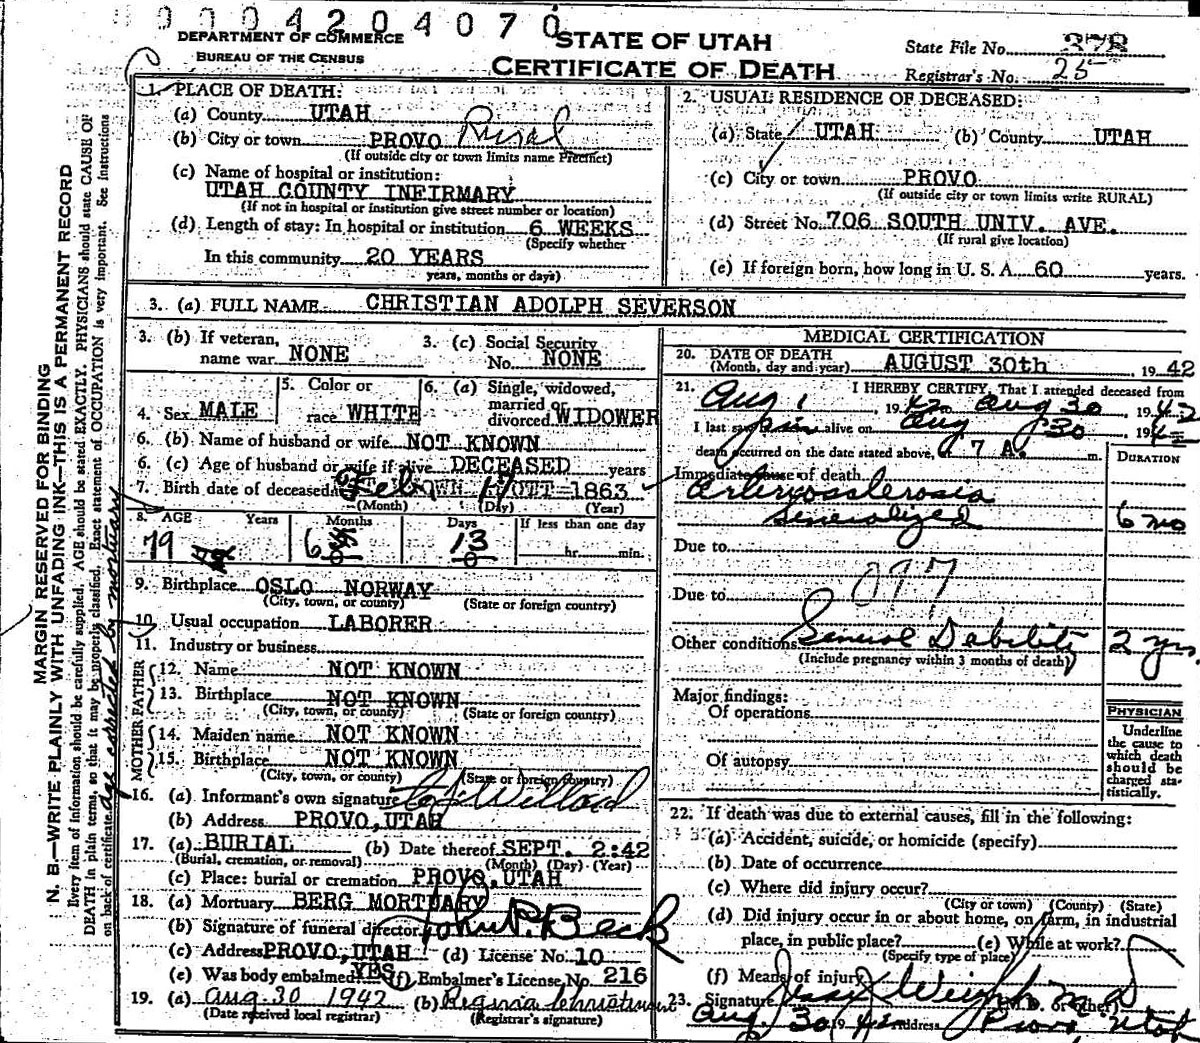 0004204070
DEPARTMENT OF COMMERCE
BUREAU OF THE CENSUS
STATE OF UTAH
CERTIFICATE OF DEATH
State File No. 378
Registrar's No. 25
1. PLACE OF DEATH:
(a) County UTAH
(b) City or town PROVO Rural
(If outside city or town limits name Precinct)
(c) Name of hospital or institution:
UTAH COUNTY INFIRMARY
(If not in hospital or institution give street number or location)
(d) Length of stay: In hospital or institution 6 WEEKS
(Specify whether
In this community 20 YEARS
years, months or days)
2. USUAL RESIDENCE OF DECEASED:
(a) State UTAH (b) County UTAH
(c) City or town PROVO
(If outside city or town limits write RURAL)
(d) Street No. 706 SOUTH UNIV. AVE.
(If rural give location)
(e) If foreign born, how long in U. S. A. 60 years.
3. (a) FULL NAME CHRISTIAN ADOLPH SEVERSON
3. (b) If veteran, name war NONE
3. (c) Social Security No. NONE
4. Sex MALE
5. Color or race WHITE
6. (a) Single, widowed, married or divorced WIDOWER
6. (b) Name of husband or wife NOT KNOWN
6. (c) Age of husband or wife if alive DECEASED years
7. Birth date of deceased Feb 17 1863
(Month) (Day) (Year)
8. AGE Years Months Days If less than one day
79 6 13 hr. min.
9. Birthplace OSLO NORWAY
(City, town, or county) (State or foreign country)
10. Usual occupation LABORER
11. Industry or business
FATHER
12. Name NOT KNOWN
13. Birthplace NOT KNOWN
(City, town, or county) (State or foreign country)
MOTHER
14. Maiden name NOT KNOWN
15. Birthplace NOT KNOWN
(City, town, or county) (State or foreign country)
16. (a) Informant's own signature Willard
(b) Address PROVO, UTAH
17. (a) BURIAL (b) Date thereof SEPT. 2:42
(Burial, cremation, or removal) (Month) (Day) (Year)
(c) Place: burial or cremation PROVO, UTAH
18. (a) Mortuary BERG MORTUARY
(b) Signature of funeral director John P. Beck
(c) Address PROVO, UTAH (d) License No. 10
(e) Was body embalmed YES (f) Embalmer's License No. 216
19. (a) Aug. 30 1942 (b)
(Date received local registrar) (Registrar's signature)
MEDICAL CERTIFICATION
20. DATE OF DEATH
(Month, day and year) AUGUST 30th 1942
21. I HEREBY CERTIFY, That I attended deceased from
Aug 1, 1942 to Aug 30, 1942
I last saw him alive on Aug 30, 1942
death occurred on the date stated above, 7 A. m.
DURATION
Immediate cause of death
Arteriosclerosis
Generalized 6 mo
Due to
097
Due to
Other conditions General Debility 2 yrs.
(Include pregnancy within 3 months of death)
Major findings:
Of operations
Of autopsy
PHYSICIAN
Underline
the cause to
which death
should be
charged sta-
tistically.
22. If death was due to external causes, fill in the following:
(a) Accident, suicide, or homicide (specify)
(b) Date of occurrence
(c) Where did injury occur?
(City or town) (County) (State)
(d) Did injury occur in or about home, on farm, in industrial
place, in public place? (e) While at work?
(Specify type of place)
(f) Means of injury
23. Signature Jesse J. Weight M D (M.D. or other)
Aug. 30 1942 Address Provo, Utah
MARGIN RESERVED FOR BINDING
N. B.—WRITE PLAINLY WITH UNFADING INK—THIS IS A PERMANENT RECORD
Every item of information should be carefully supplied. AGE should be stated EXACTLY. PHYSICIANS should state CAUSE OF
DEATH in plain terms, so that it may be properly classified. Exact statement of OCCUPATION is very important. See Instructions
on back of certificate. Age corrected by mortuary